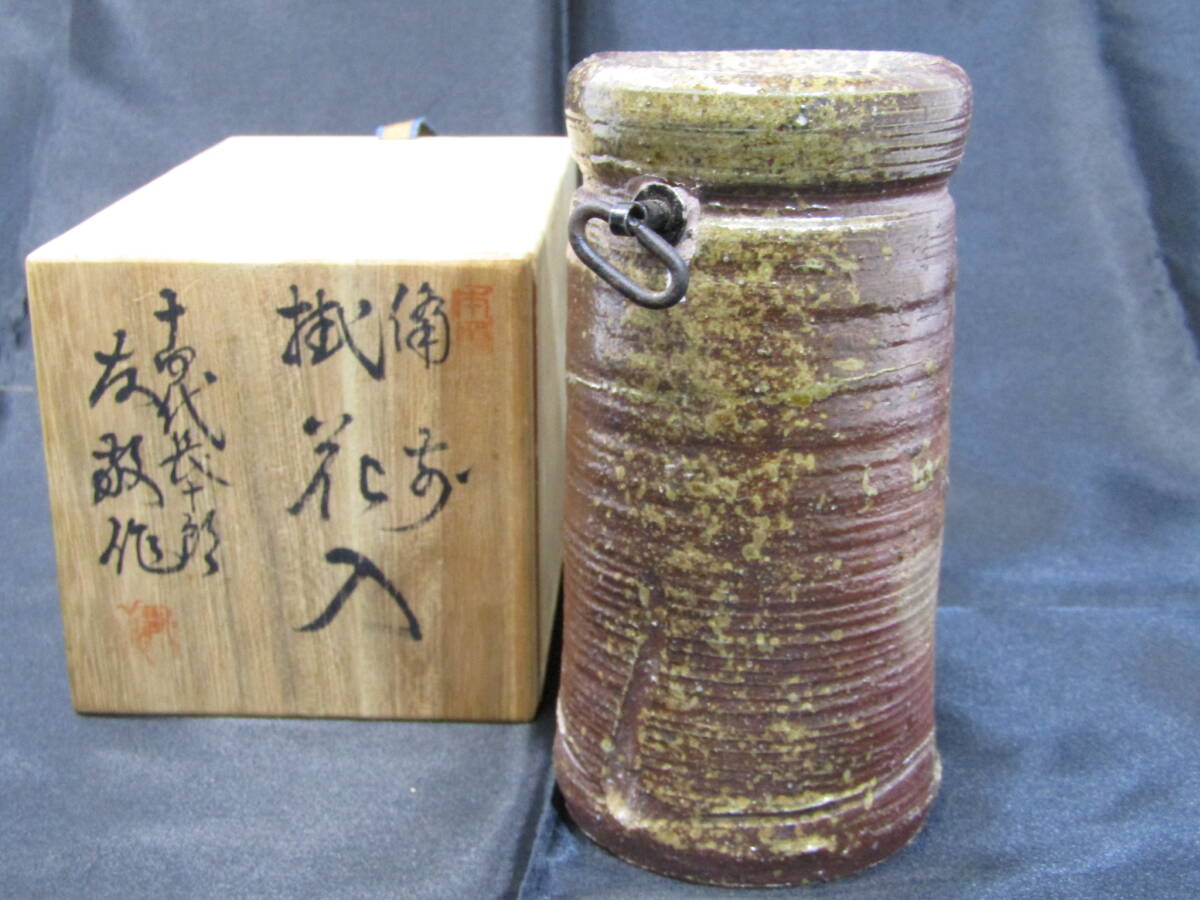 備前
掛花入
十四代茂十郎
友敬作